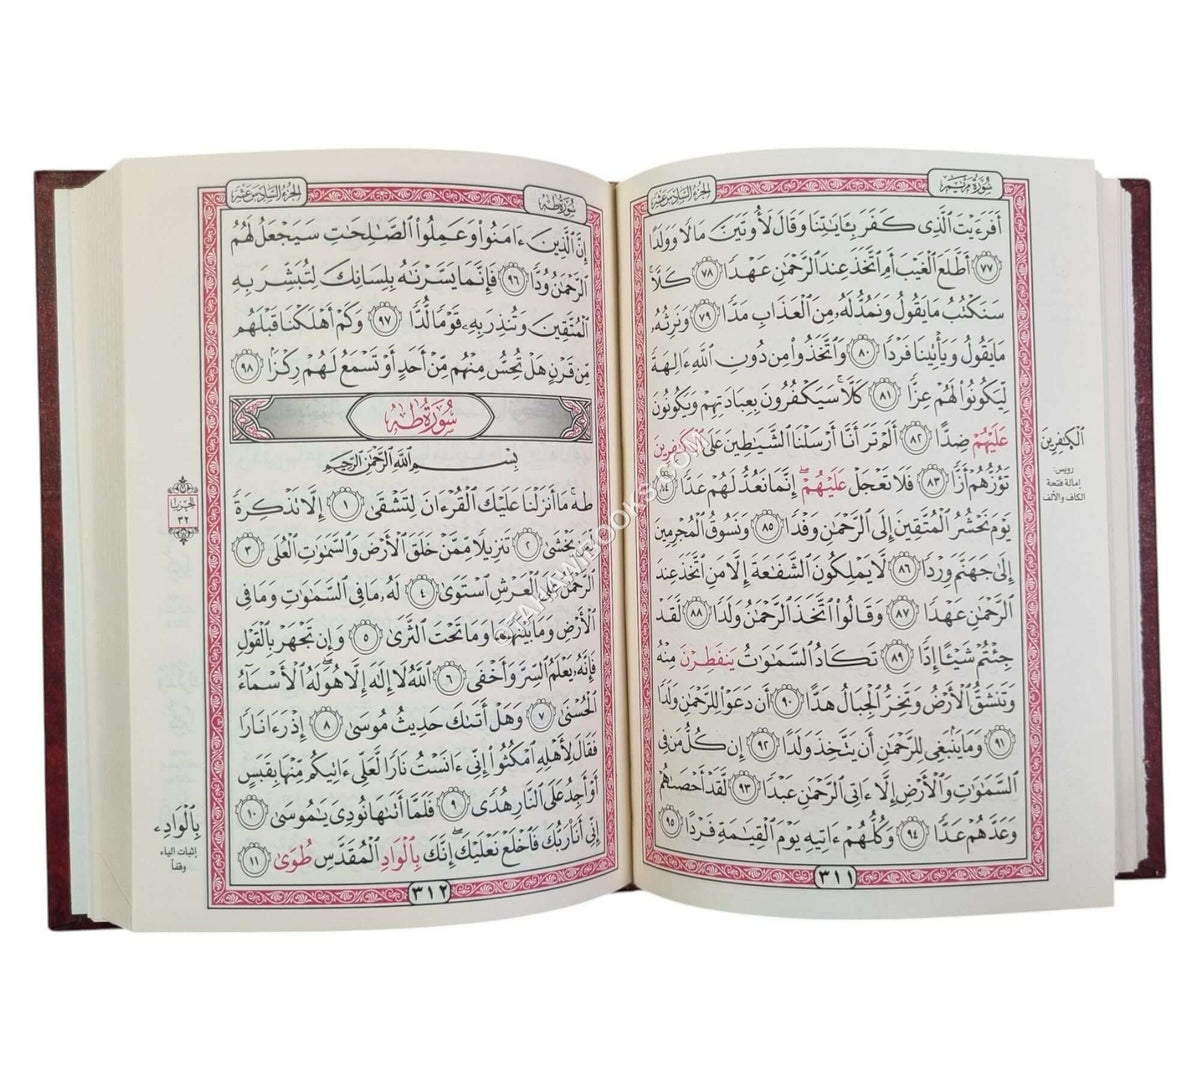 سُورَةُ مَرْيَمَ
الجُزْءُ السَّادِسَ عَشَرَ
أَفَرَءَيْتَ ٱلَّذِى كَفَرَ بِـَٔايَٰتِنَا وَقَالَ لَأُوتَيَنَّ مَالًا وَوَلَدًا
٧٧ أَطَّلَعَ ٱلْغَيْبَ أَمِ ٱتَّخَذَ عِندَ ٱلرَّحْمَٰنِ عَهْدًا ٧٨ كَلَّا
سَنَكْتُبُ مَا يَقُولُ وَنَمُدُّ لَهُۥ مِنَ ٱلْعَذَابِ مَدًّا ٧٩ وَنَرِثُهُۥ
مَا يَقُولُ وَيَأْتِينَا فَرْدًا ٨٠ وَٱتَّخَذُوا۟ مِن دُونِ ٱللَّهِ ءَالِهَةً
لِّيَكُونُوا۟ لَهُمْ عِزًّا ٨١ كَلَّا سَيَكْفُرُونَ بِعِبَادَتِهِمْ وَيَكُونُونَ
عَلَيْهُمْ ضِدًّا ٨٢ أَلَمْ تَرَ أَنَّا أَرْسَلْنَا ٱلشَّيَٰطِينَ عَلَى ٱلْكَٰفِرِينَ
تَؤُزُّهُمْ أَزًّا ٨٣ فَلَا تَعْجَلْ عَلَيْهُمْ إِنَّمَا نَعُدُّ لَهُمْ عَدًّا ٨٤
يَوْمَ نَحْشُرُ ٱلْمُتَّقِينَ إِلَى ٱلرَّحْمَٰنِ وَفْدًا ٨٥ وَنَسُوقُ ٱلْمُجْرِمِينَ
إِلَىٰ جَهَنَّمَ وِرْدًا ٨٦ لَا يَمْلِكُونَ ٱلشَّفَٰعَةَ إِلَّا مَنِ ٱتَّخَذَ عِندَ
ٱلرَّحْمَٰنِ عَهْدًا ٨٧ وَقَالُوا۟ ٱتَّخَذَ ٱلرَّحْمَٰنُ وَلَدًا ٨٨ لَقَدْ
جِئْتُمْ شَيْـًٔا إِدًّا ٨٩ تَكَادُ ٱلسَّمَٰوَٰتُ يَنفَطِرْنَ مِنْهُ
وَتَنشَقُّ ٱلْأَرْضُ وَتَخِرُّ ٱلْجِبَالُ هَدًّا ٩٠ أَن دَعَوْا۟ لِلرَّحْمَٰنِ وَلَدًا
٩١ وَمَا يَنۢبَغِى لِلرَّحْمَٰنِ أَن يَتَّخِذَ وَلَدًا ٩٢ إِن كُلُّ مَن فِى
ٱلسَّمَٰوَٰتِ وَٱلْأَرْضِ إِلَّا ءَاتِى ٱلرَّحْمَٰنِ عَبْدًا ٩٣ لَّقَدْ أَحْصَىٰهُمْ
وَعَدَّهُمْ عَدًّا ٩٤ وَكُلُّهُمْ ءَاتِيهِ يَوْمَ ٱلْقِيَٰمَةِ فَرْدًا ٩٥
٣١١
ٱلْكَٰفِرِينَ
رويس:
إمالة فتحة
الكاف والألف
سُورَةُ طه
الجُزْءُ السَّادِسَ عَشَرَ
إِنَّ ٱلَّذِينَ ءَامَنُوا۟ وَعَمِلُوا۟ ٱلصَّٰلِحَٰتِ سَيَجْعَلُ لَهُمُ
ٱلرَّحْمَٰنُ وُدًّا ٩٦ فَإِنَّمَا يَسَّرْنَٰهُ بِلِسَانِكَ لِتُبَشِّرَ بِهِ
ٱلْمُتَّقِينَ وَتُنذِرَ بِهِۦ قَوْمًا لُّدًّا ٩٧ وَكَمْ أَهْلَكْنَا قَبْلَهُم
مِّن قَرْنٍ هَلْ تُحِسُّ مِنْهُم مِّنْ أَحَدٍ أَوْ تَسْمَعُ لَهُمْ رِكْزًۢا ٩٨
سُورَةُ طه
بِسْمِ ٱللَّهِ ٱلرَّحْمَٰنِ ٱلرَّحِيمِ
طه مَا أَنزَلْنَا عَلَيْكَ ٱلْقُرْءَانَ لِتَشْقَىٰ ١ إِلَّا تَذْكِرَةً
لِّمَن يَخْشَىٰ ٢ تَنزِيلًا مِّمَّنْ خَلَقَ ٱلْأَرْضَ وَٱلسَّمَٰوَٰتِ ٱلْعُلَى ٣
ٱلرَّحْمَٰنُ عَلَى ٱلْعَرْشِ ٱسْتَوَىٰ ٤ لَهُۥ مَا فِى ٱلسَّمَٰوَٰتِ وَمَا فِى
ٱلْأَرْضِ وَمَا بَيْنَهُمَا وَمَا تَحْتَ ٱلثَّرَىٰ ٥ وَإِن تَجْهَرْ بِٱلْقَوْلِ
فَإِنَّهُۥ يَعْلَمُ ٱلسِّرَّ وَأَخْفَى ٦ ٱللَّهُ لَا إِلَٰهَ إِلَّا هُوَ لَهُ ٱلْأَسْمَآءُ
ٱلْحُسْنَىٰ ٧ وَهَلْ أَتَىٰكَ حَدِيثُ مُوسَىٰ ٨ إِذْ رَءَا نَارًا
فَقَالَ لِأَهْلِهِ ٱمْكُثُوا۟ إِنِّى ءَانَسْتُ نَارًا لَّعَلِّى ءَاتِيكُم مِّنْهَا بِقَبَسٍ
أَوْ أَجِدُ عَلَى ٱلنَّارِ هُدًى ٩ فَلَمَّا أَتَىٰهَا نُودِىَ يَٰمُوسَىٰ ١٠
إِنِّى أَنَا۠ رَبُّكَ فَٱخْلَعْ نَعْلَيْكَ إِنَّكَ بِٱلْوَادِ ٱلْمُقَدَّسِ طُوَىٰ ١١
٣١٢
الحِزْبُ
٣٢
بِٱلْوَادِۦ
إثبات الياء
وقفاً